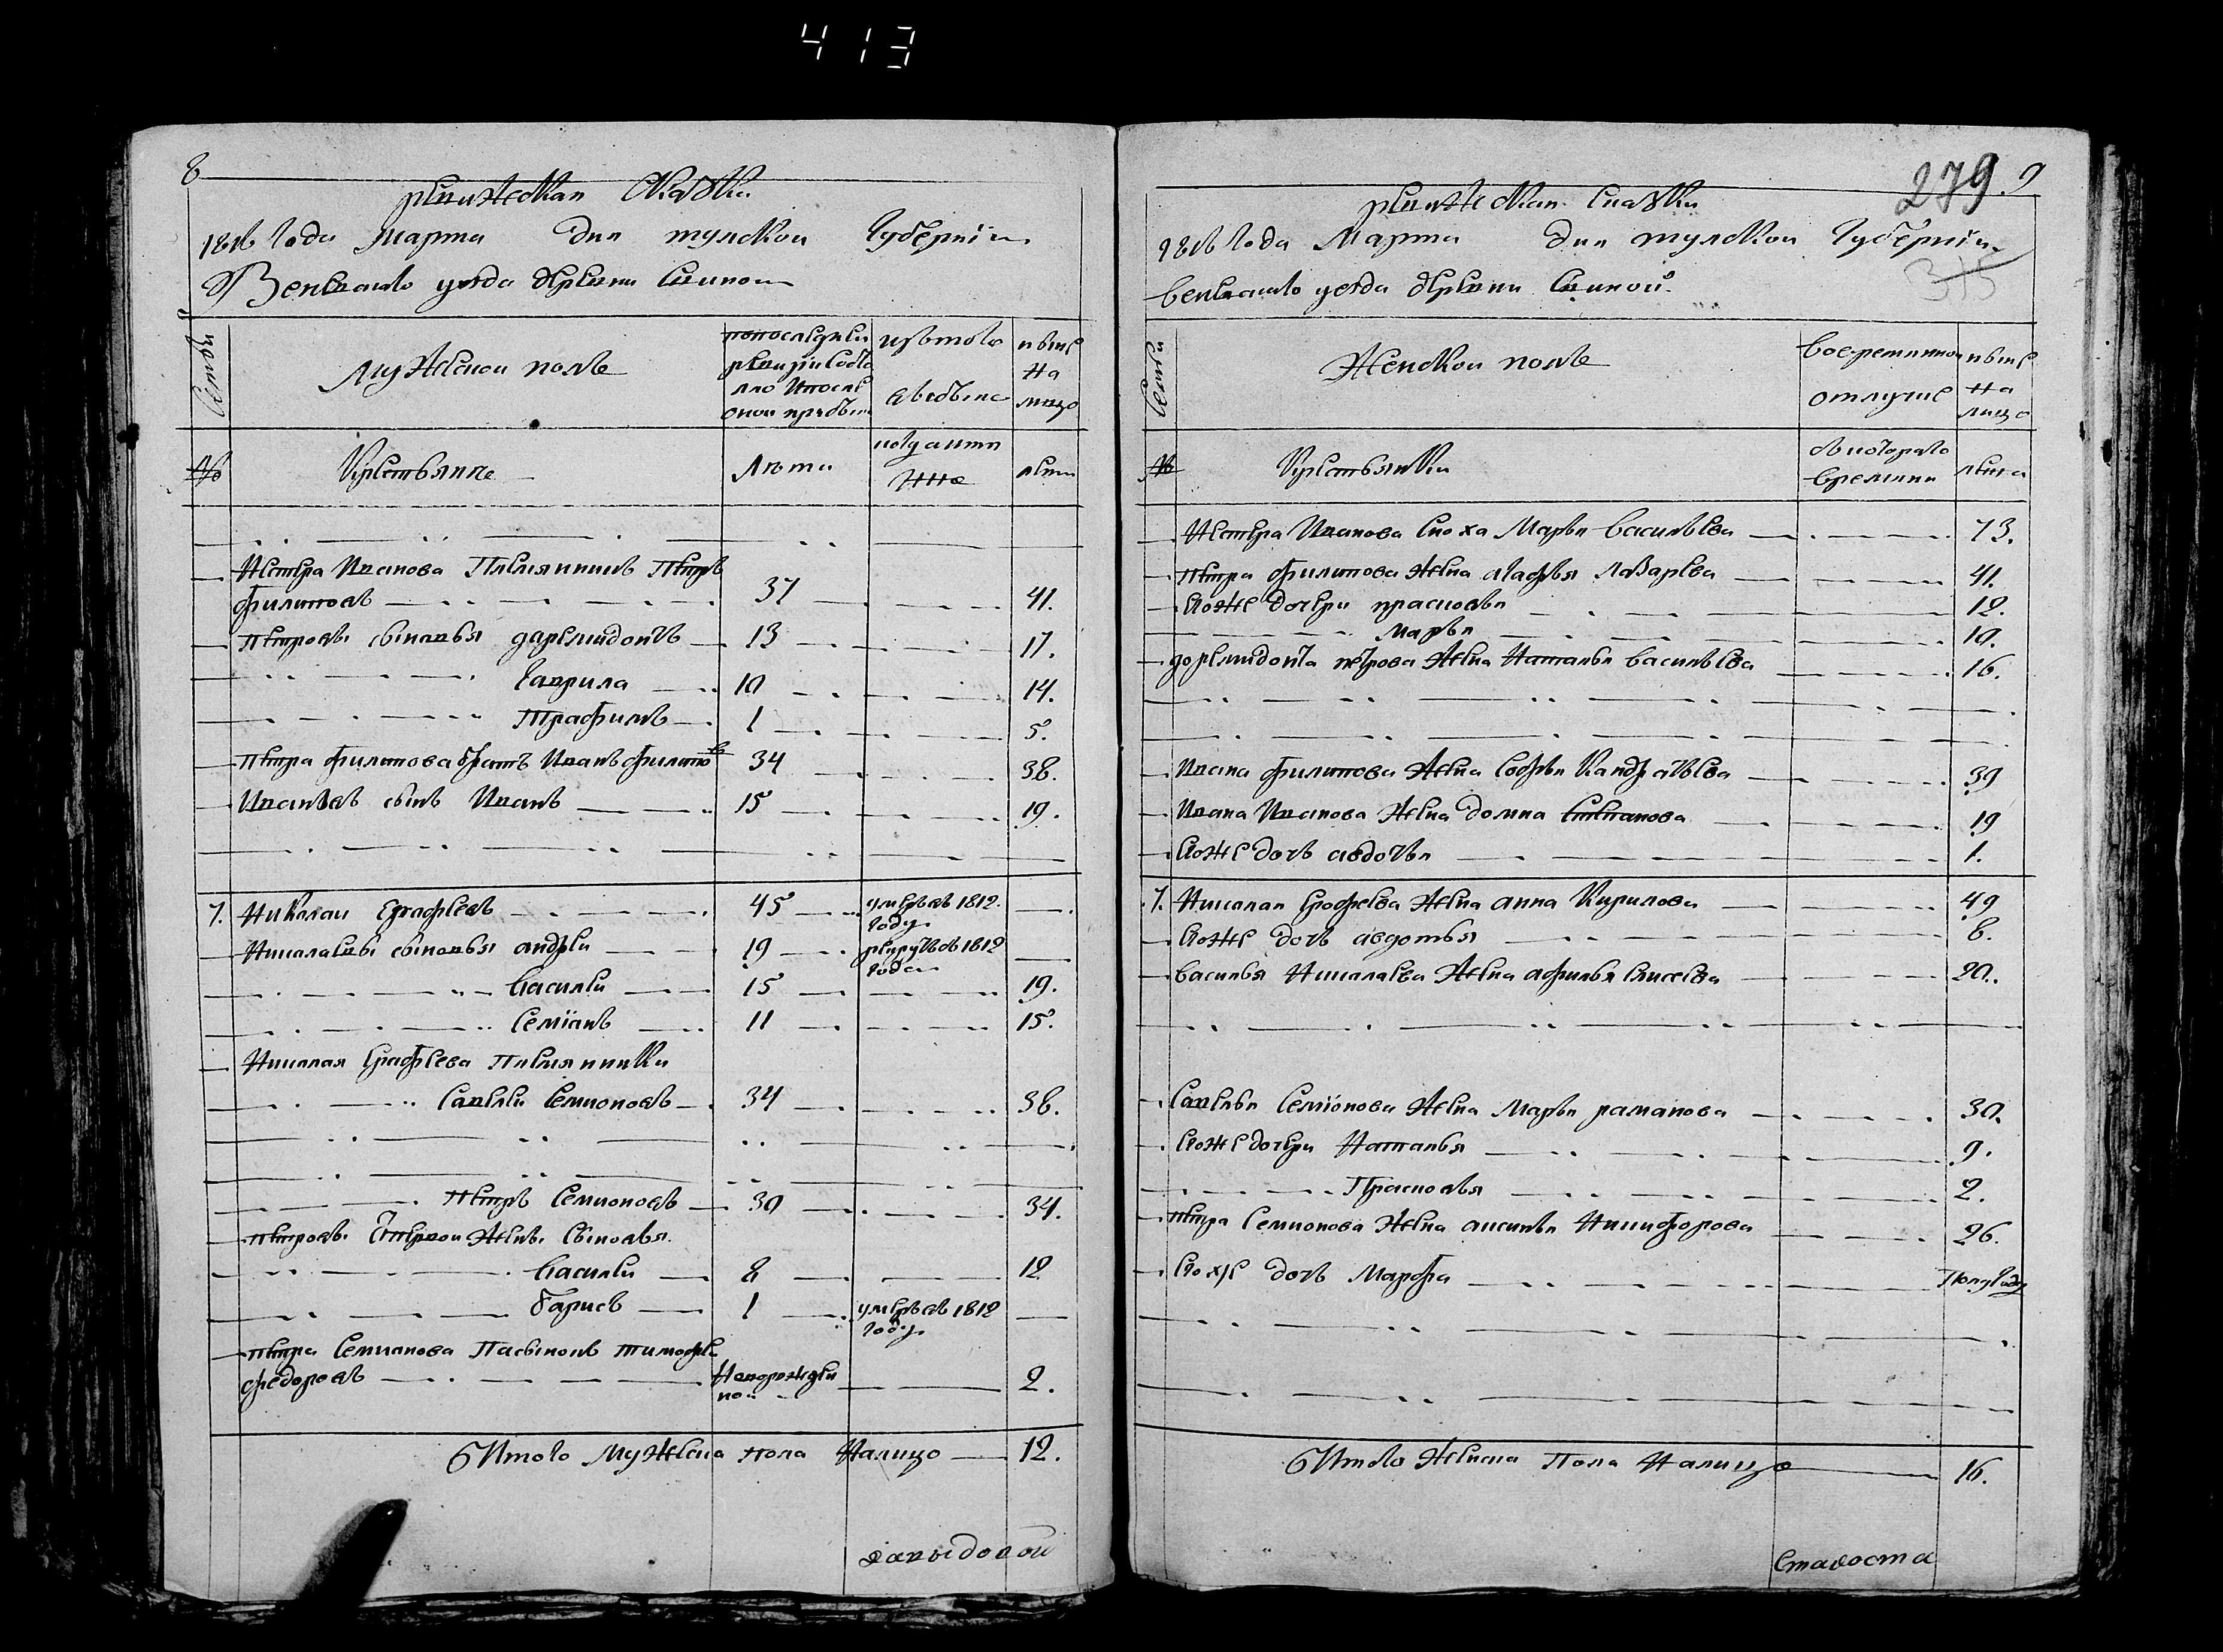 413
8
ревижская сказка
1816 года марта дня тулской губернии
Веневского уезда деревни
Семьи
мужеской полъ
ис того
числа
выбыло
ныне
на
лицо
№
Крестьяне
Лета
когда имя
нно
лета
Нестера Иванова Племянникъ Петръ
филиповъ 37 41.
Петровы сыновья доремидонтъ 13 17.
Гаврила 10 14.
Трафимъ 1 5.
Петра филипова братъ Иванъ филиповъ 34 38.
Ивановъ сынъ Иванъ 15 19.
7. Николай Ерафеевъ 45 умеръ въ 1812
году
Николаевы сыновья андреи 19 рекрутъ въ 1812
года
Василеи 15 19.
Семіонъ 11 15.
Николая Ерафеева Племянники
Савелеи Семионовъ 34 38.
Петръ Семионовъ 30 34.
Петровы отпервой жены Сыновья
Василеи 8 12
Барисъ 1 умеръ въ 1812
году
Петра Семионова Пасынокъ тимофеи
федоровъ Неворожден
ной 2.
Итого мужеска пола Налицо 12.
давыдовой
279. 9
315
ревижская сказка
1816 года Марта дня тулской губернии
веневского уезда деревни
Семьи
Женской полъ
во временной
отлучке
ныне
на
лицо
№
Крестьянки
съ которого
времени
лета
Нестера Иванова сноха Марья васильева 73.
Петра филипова жена агафья лазарева 41.
Ево же дочери прасковья 12.
Марья 10.
доремидонта петрова жена Наталья васильева 16.
Ивана филипова жена софья Кандратьева 39
Ивана Иванова жена домна степанова 19
Ево же дочь авдотья 1.
7. Николая Ерофеева жена анна Кирилова 49
Ево же дочь авдотья 8.
василья Николаева жена афимья елисеева 20.
Савелья Семіонова жена Марья раманова 30.
Ево же дочери Наталья 9.
Прасковья 2.
Петра Семионова жена аксинья Никифорова 26.
Ево же дочь Марфа Полугоду
Итого женска Пола Налицо 16.
Староста